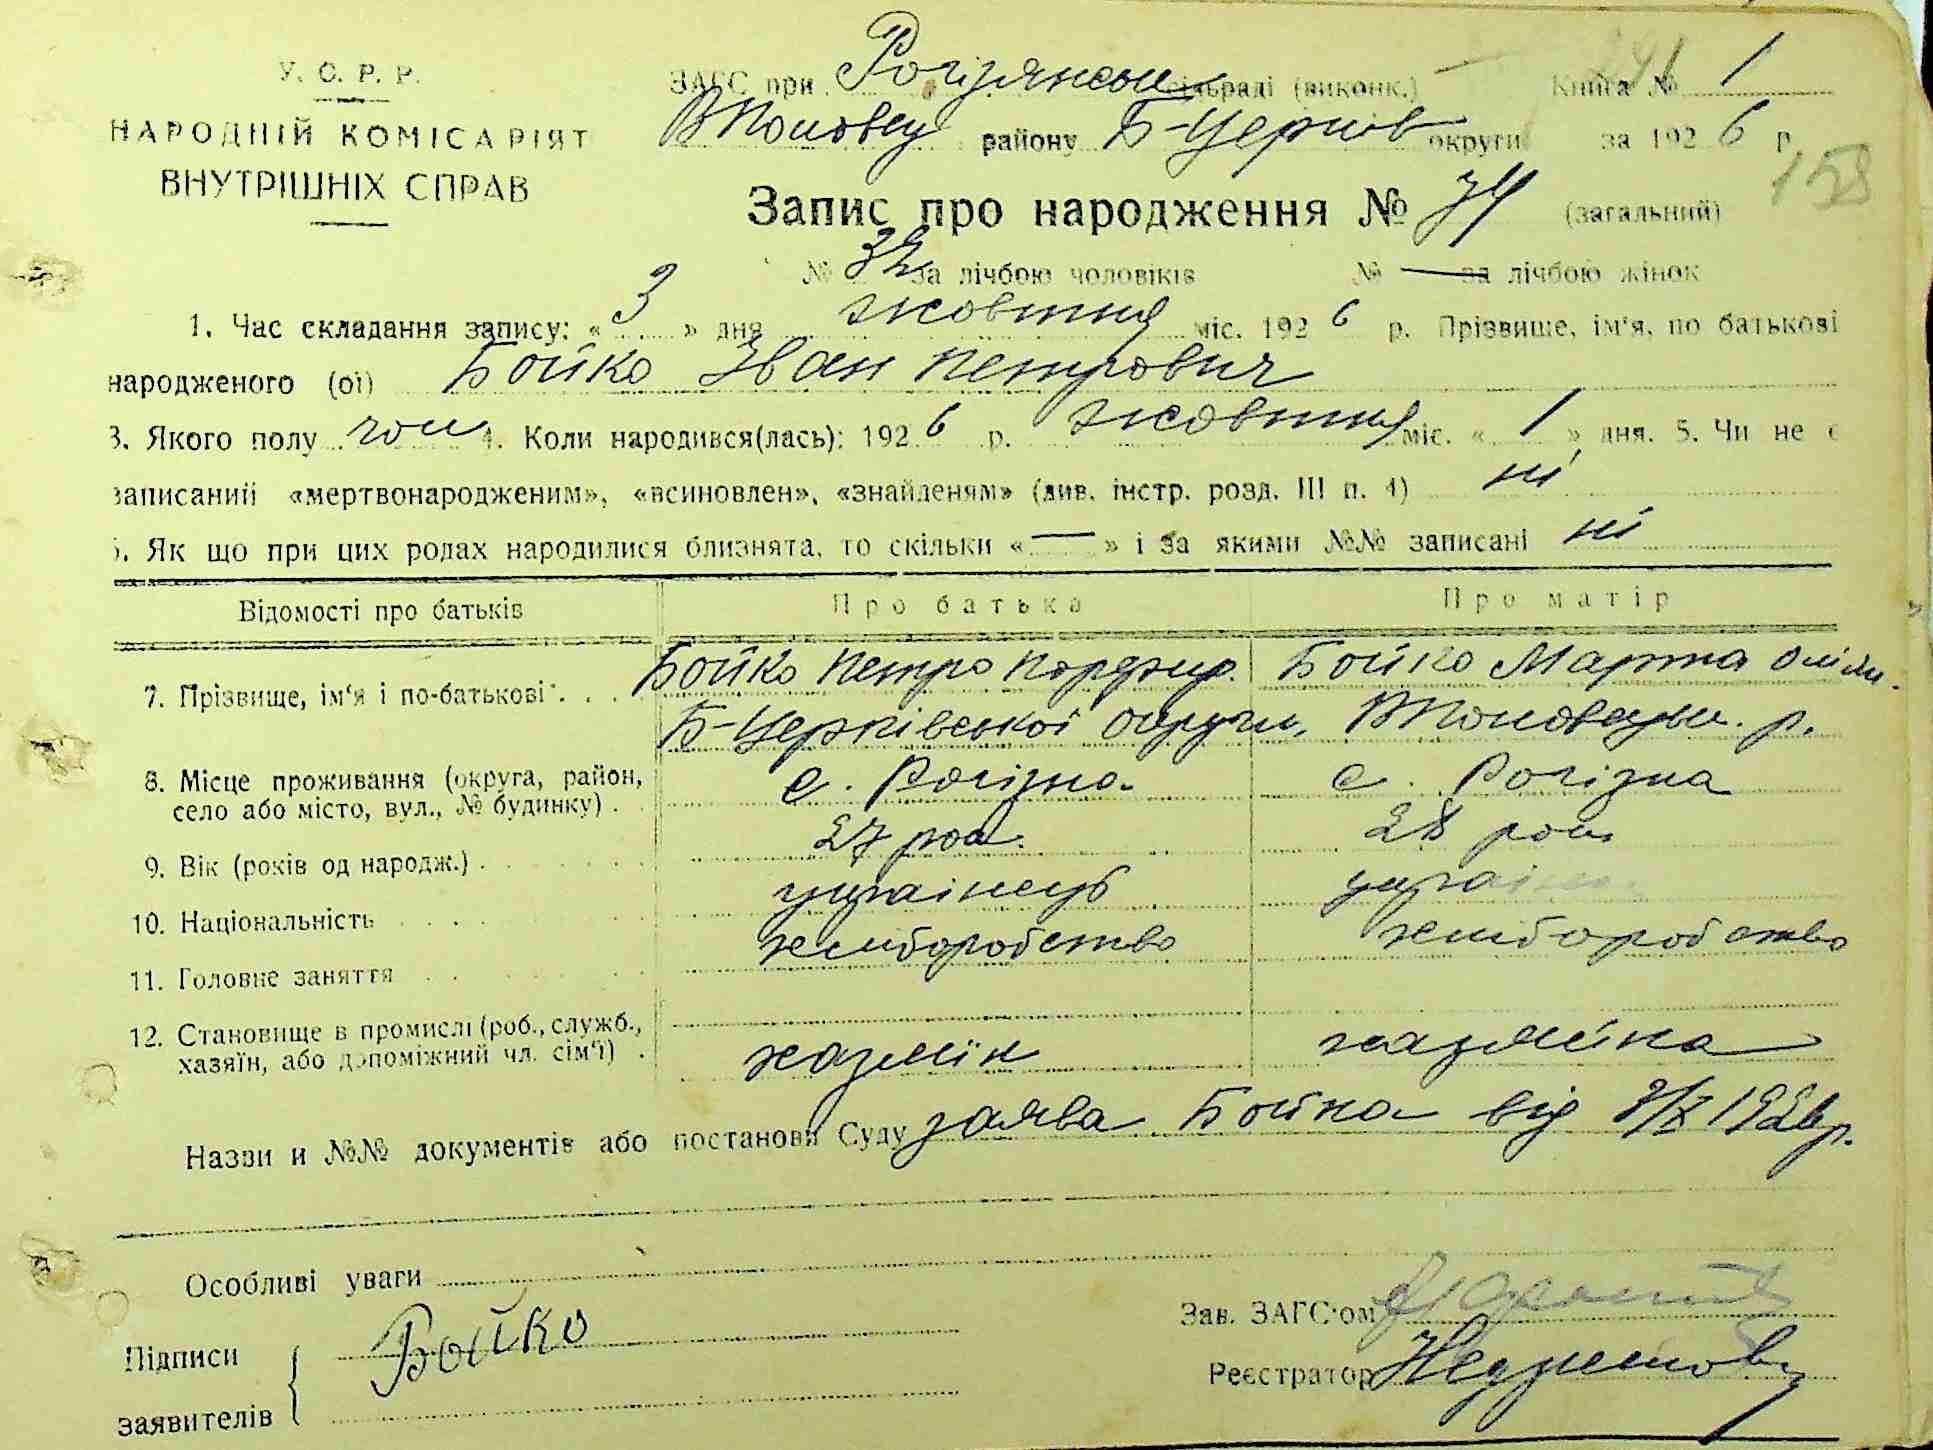 У. С. Р. Р.
НАРОДНІЙ КОМІСАРІЯТ
ВНУТРІШНІХ СПРАВ
ЗАГС при Рогізянськ сільраді (виконк.) Книга № 1
району Б-Церків округи за 1926 р.
158
Запис про народження № 74 (загальний)
№ 32 за лічбою чоловіків № — за лічбою жінок
1. Час складання запису: «3» дня жовтня міс. 1926 р. Прізвище, ім'я, по батькові
народженого (ої) Бойко Іван Петрович
3. Якого полу чол 4. Коли народився(лась): 1926 р. жовтня міс. «1» дня. 5. Чи не є
записаний «мертвонародженим», «всиновлен», «знайденям» (див. інстр. розд. III п. 4) ні
6. Як що при цих родах народилися близнята, то скільки «—» і за якими №№ записані ні
Відомості про батьків Про батька Про матір
7. Прізвище, ім'я і по-батькові Бойко Петро Порфир. Бойко Марта
Б-Церківської округи, р.
8. Місце проживання (округа, район, с. Рогізна с. Рогізна
село або місто, вул., № будинку)
9. Вік (років од народж.) 27 рок. 28 рок.
10. Національність українець україн
11. Головне заняття хліборобство хліборобство
12. Становище в промислі (роб., служб.,
хазяїн, або допоміжний чл. сім'ї) хазяїн хазяйка
Назви и №№ документів або постанови Суду заява Бойка від 3/X 1926 р.
Особливі уваги
Зав. ЗАГС'ом
Підписи Бойко
Реєстратор
заявителів